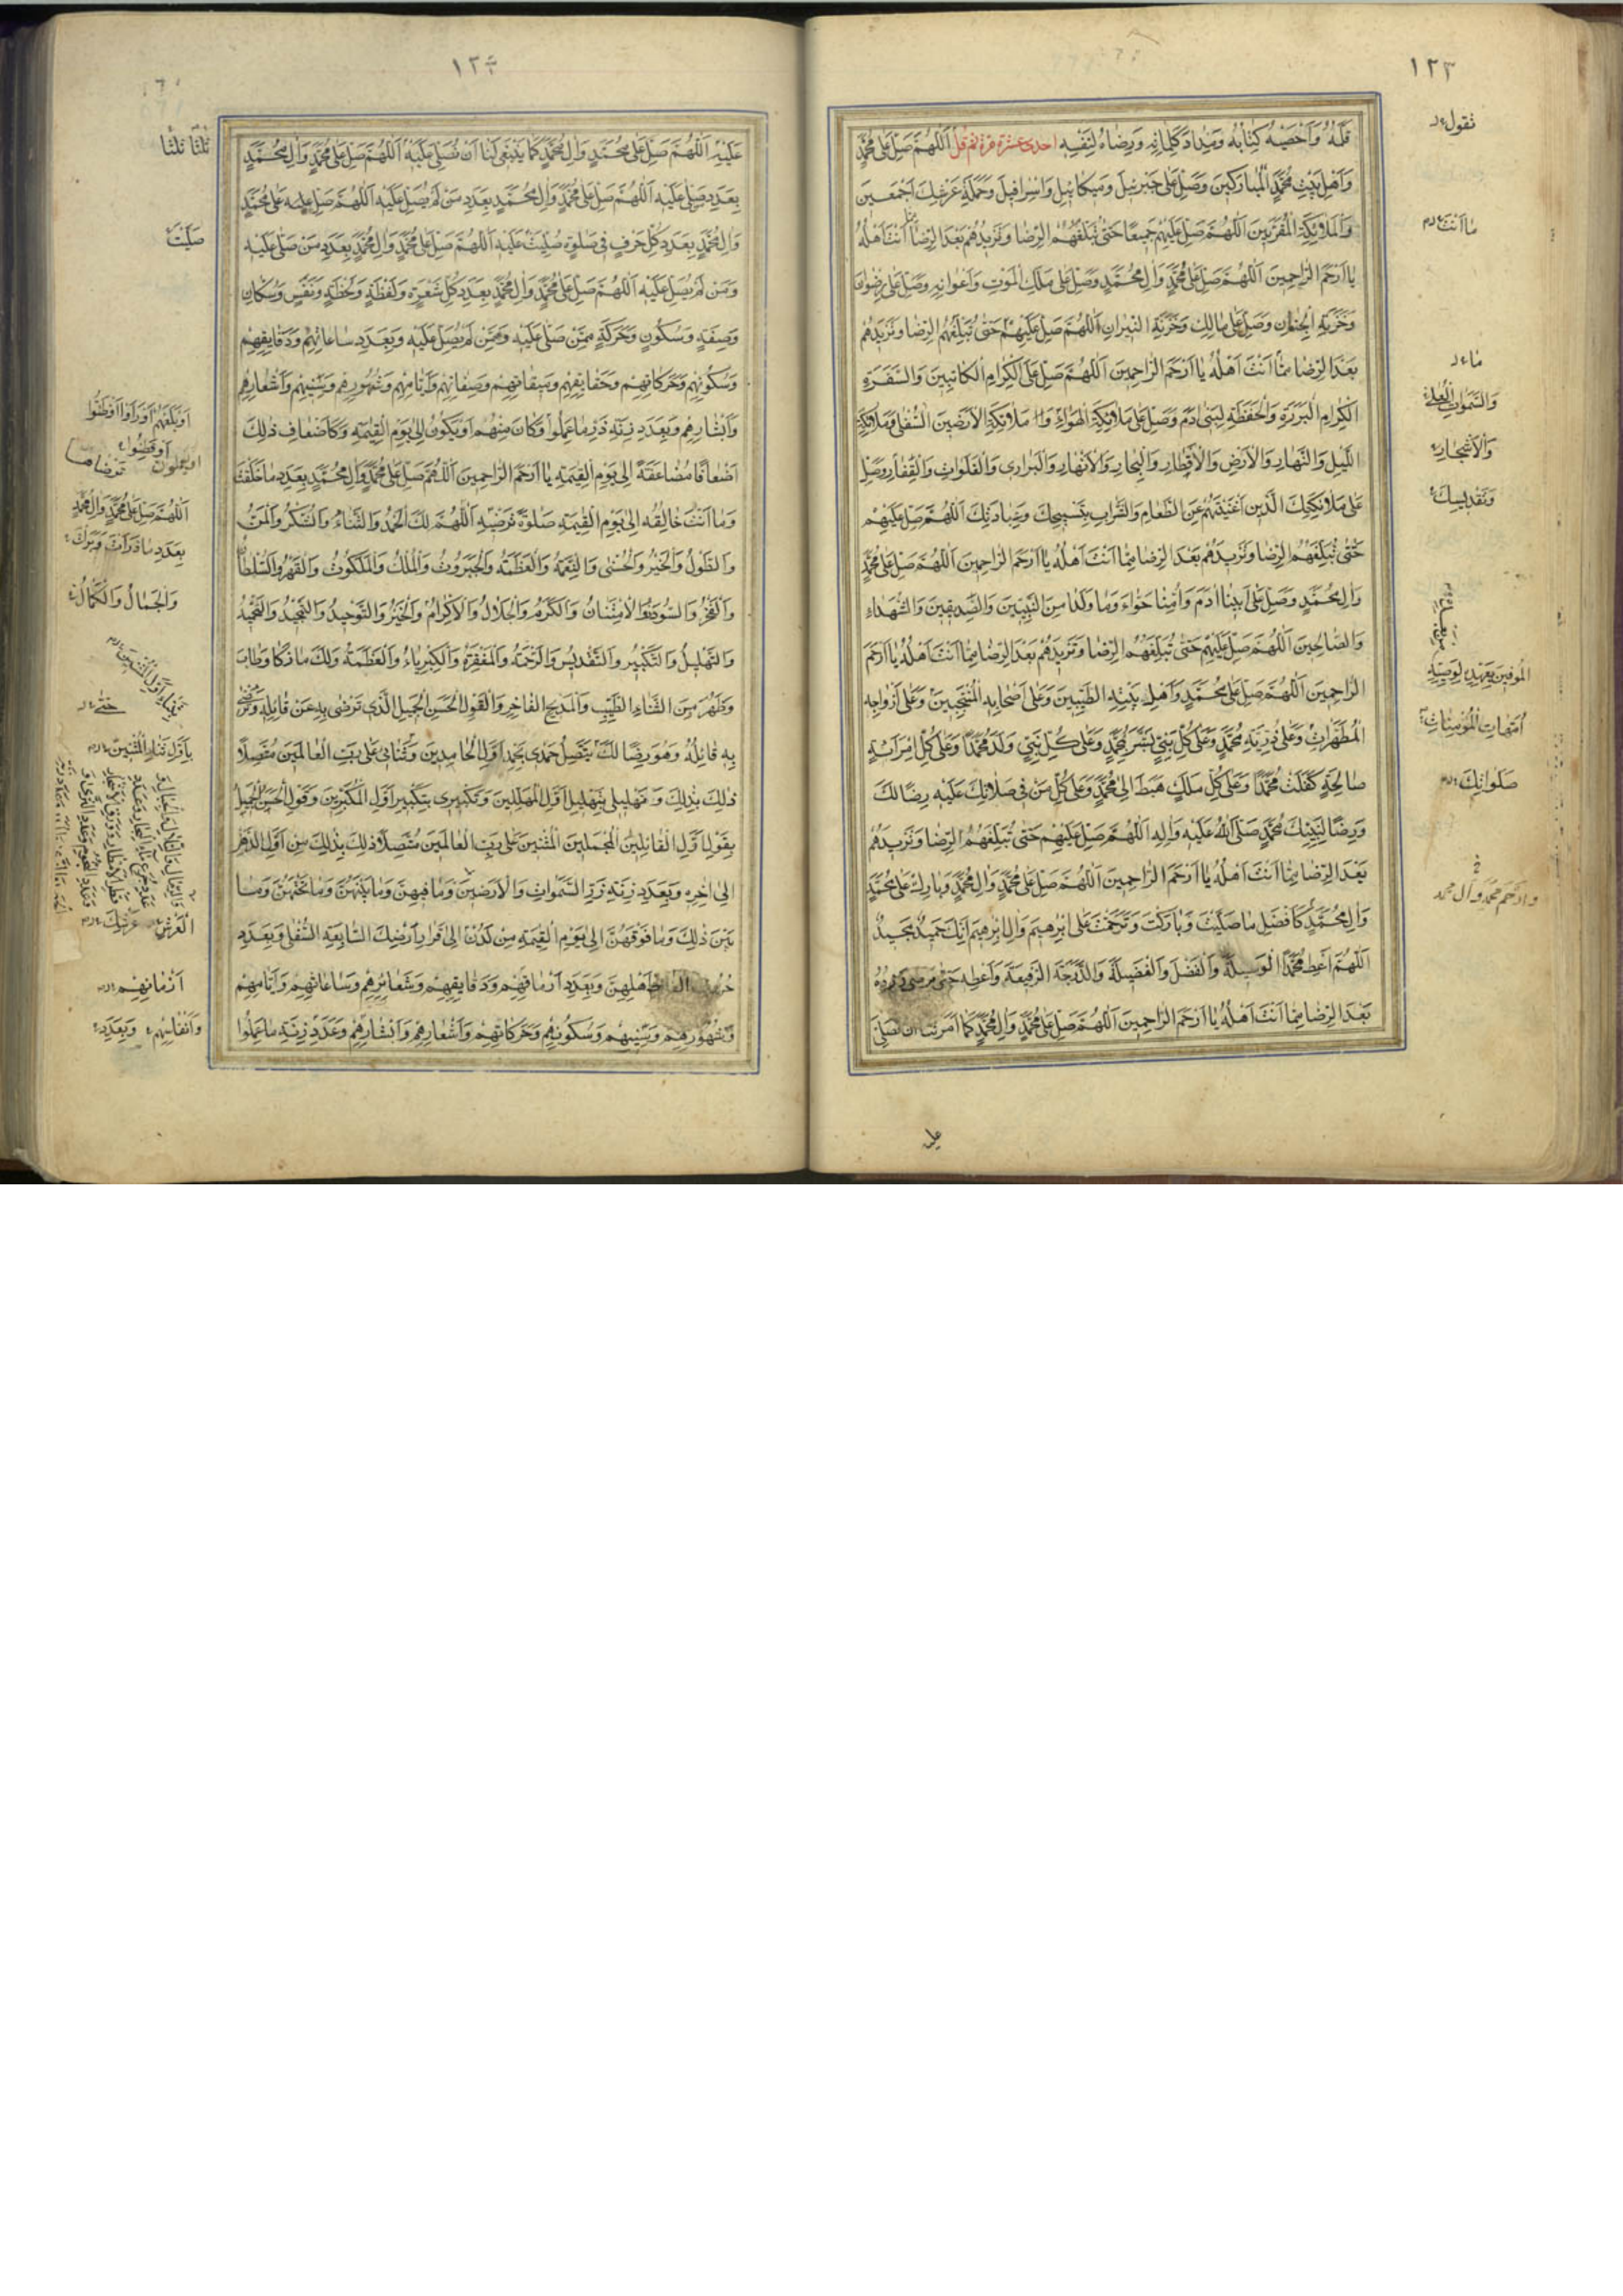 ١٢٣
قَلَمُهُ وَاَحْصَیهُ كِتابُهُ وَمِدادَ كَلِماتِهِ وَرِضاهُ لِنَفْسِهِ احدی عشرة مرة ثم قل اَللّهُمَّ صَلِّ عَلى مُحَمَّدٍ
وَاَهْلِ بَیْتِ مُحَمَّدٍ الْمُبارَكینَ وَصَلِّ عَلى جَبْرَئیلَ وَمیكائیلَ وَاِسْرافیلَ وَحَمَلَةِ عَرْشِكَ اَجْمَعینَ
وَالْمَلائِكَةِ الْمُقَرَّبینَ اَللّهُمَّ صَلِّ عَلَیْهِمْ جَمیعًا حَتّى تُبَلِّغَهُمُ الرِّضا وَتَزیدَهُمْ بَعْدَ الرِّضا اَنْتَ اَهْلُهُ
یا اَرْحَمَ الرّاحِمینَ اَللّهُمَّ صَلِّ عَلى مُحَمَّدٍ وَالِ مُحَمَّدٍ وَصَلِّ عَلى مَلَكِ الْمَوْتِ وَاَعْوانِهِ وَصَلِّ عَلى رِضْوانَ
وَخَزَنَةِ الْجِنانِ وَصَلِّ عَلى مالِكٍ وَخَزَنَةِ النّیرانِ اَللّهُمَّ صَلِّ عَلَیْهِمْ حَتّى تُبَلِّغَهُمُ الرِّضا وَتَزیدَهُمْ
بَعْدَ الرِّضا مِمّا اَنْتَ اَهْلُهُ یا اَرْحَمَ الرّاحِمینَ اَللّهُمَّ صَلِّ عَلَى الْكِرامِ الْكاتِبینَ وَالسَّفَرَةِ
الْكِرامِ الْبَرَرَةِ وَالْحَفَظَةِ لِبَنی ادَمَ وَصَلِّ عَلى مَلائِكَةِ الْهَواءِ وَ مَلائِكَةِ الْاَرَضینَ السُّفْلى وَمَلائِكَةِ
اللَّیْلِ وَالنَّهارِ وَالْاَرْضِ وَالْاَقْطارِ وَالْبِحارِ وَالْاَنْهارِ وَالْبَراری وَالْفَلَواتِ وَالْقِفارِ وَصَلِّ
عَلى مَلائِكَتِكَ الَّذینَ اَغْنَیْتَهُمْ عَنِ الطَّعامِ وَالشَّرابِ بِتَسْبیحِكَ وَعِبادَتِكَ اَللّهُمَّ صَلِّ عَلَیْهِمْ
حَتّى تُبَلِّغَهُمُ الرِّضا وَتَزیدَهُمْ بَعْدَ الرِّضا مِمّا اَنْتَ اَهْلُهُ یا اَرْحَمَ الرّاحِمینَ اَللّهُمَّ صَلِّ عَلى مُحَمَّدٍ
وَالِ مُحَمَّدٍ وَصَلِّ عَلى اَبینا ادَمَ وَاُمِّنا حَوّاءَ وَما وَلَدا مِنَ النَّبِیّینَ وَالصِّدّیقینَ وَالشُّهَداءِ
وَالصّالِحینَ اَللّهُمَّ صَلِّ عَلَیْهِمْ حَتّى تُبَلِّغَهُمُ الرِّضا وَتَزیدَهُمْ بَعْدَ الرِّضا مِمّا اَنْتَ اَهْلُهُ یا اَرْحَمَ
الرّاحِمینَ اَللّهُمَّ صَلِّ عَلى مُحَمَّدٍ وَاَهْلِ بَیْتِهِ الطَّیِّبینَ وَعَلى اَصْحابِهِ الْمُنْتَجَبینَ وَعَلى اَزْواجِهِ
الْمُطَهَّراتِ وَعَلى ذُرِّیَّةِ مُحَمَّدٍ وَعَلى كُلِّ نَبِیٍّ بَشَّرَ بِمُحَمَّدٍ وَعَلى كُلِّ نَبِیٍّ وَلَدَ مُحَمَّدًا وَعَلى كُلِّ امْرَاَةٍ
صالِحَةٍ كَفَلَتْ مُحَمَّدًا وَعَلى كُلِّ مَلَكٍ هَبَطَ اِلى مُحَمَّدٍ وَعَلى كُلِّ مَنْ فی صَلاتِكَ عَلَیْهِ رِضًا لَكَ
وَرِضًا لِنَبِیِّكَ مُحَمَّدٍ صَلَّى اللهُ عَلَیْهِ وَالِهِ اَللّهُمَّ صَلِّ عَلَیْهِمْ حَتّى تُبَلِّغَهُمُ الرِّضا وَتَزیدَهُمْ
بَعْدَ الرِّضا مِمّا اَنْتَ اَهْلُهُ یا اَرْحَمَ الرّاحِمینَ اَللّهُمَّ صَلِّ عَلى مُحَمَّدٍ وَالِ مُحَمَّدٍ وَبارِكْ عَلى مُحَمَّدٍ
وَالِ مُحَمَّدٍ كَاَفْضَلِ ما صَلَّیْتَ وَبارَكْتَ وَتَرَحَّمْتَ عَلى اِبْرهیمَ وَالِ اِبْرهیمَ اِنَّكَ حَمیدٌ مَجیدٌ
اَللّهُمَّ اَعْطِ مُحَمَّدًا الْوَسیلَةَ وَالْفَضْلَ وَالْفَضیلَةَ وَالدَّرَجَةَ الرَّفیعَةَ وَاَعْطِهِ حَتّى یَرْضى وَزِدْهُ
بَعْدَ الرِّضا مِمّا اَنْتَ اَهْلُهُ یا اَرْحَمَ الرّاحِمینَ اَللّهُمَّ صَلِّ عَلى مُحَمَّدٍ وَالِ مُحَمَّدٍ كَما اَمَرْتَنا اَنْ نُصَلِّیَ
علیه
تقول
ما اَنْتَ
ماء
وَالسَّمواتِ الْعُلى
وَالْاَشْجارِ
وَتَقْدیسِكَ
اُمَّهاتِ الْمُؤْمِناتِ
صَلَواتِكَ
وارحم محمد وآل محمد
١٢٤
عَلَیْهِ اَللّهُمَّ صَلِّ عَلى مُحَمَّدٍ وَالِ مُحَمَّدٍ كَما یَنْبَغی لَنا اَنْ نُصَلِّیَ عَلَیْهِ اَللّهُمَّ صَلِّ عَلى مُحَمَّدٍ وَالِ مُحَمَّدٍ
بِعَدَدِ مَنْ صَلّى عَلَیْهِ اَللّهُمَّ صَلِّ عَلى مُحَمَّدٍ وَالِ مُحَمَّدٍ بِعَدَدِ مَنْ لَمْ یُصَلِّ عَلَیْهِ اَللّهُمَّ صَلِّ عَلى مُحَمَّدٍ
وَالِ مُحَمَّدٍ بِعَدَدِ كُلِّ حَرْفٍ فی صَلوةٍ صُلِّیَتْ عَلَیْهِ اَللّهُمَّ صَلِّ عَلى مُحَمَّدٍ وَالِ مُحَمَّدٍ بِعَدَدِ مَنْ صَلّى عَلَیْهِ
وَمَنْ لَمْ یُصَلِّ عَلَیْهِ اَللّهُمَّ صَلِّ عَلى مُحَمَّدٍ وَالِ مُحَمَّدٍ بِعَدَدِ كُلِّ شَعْرَةٍ وَلَفْظَةٍ وَلَحْظَةٍ وَنَفَسٍ وَسُكّانٍ
وَصِفَةٍ وَسُكُونٍ وَحَرَكَةٍ مِمَّنْ صَلّى عَلَیْهِ وَمِمَّنْ لَمْ یُصَلِّ عَلَیْهِ وَبِعَدَدِ ساعاتِهِمْ وَدَقایِقِهِمْ
وَسُكُونِهِمْ وَحَرَكاتِهِمْ وَحَقایِقِهِمْ وَمیقاتِهِمْ وَصِفاتِهِمْ وَاَیّامِهِمْ وَشُهُورِهِمْ وَسِنیهِمْ وَاَشْعارِهِمْ
وَاَبْشارِهِمْ وَبِعَدَدِ زِنَةِ ذَرِّ ما عَمِلُوا وَكانَ مِنْهُمْ اَوْ یَكُونُ اِلى یَوْمِ الْقِیمَةِ وَكَاَضْعافِ ذلِكَ
اَضْعافًا مُضاعَفَةً اِلى یَوْمِ الْقِیمَةِ یا اَرْحَمَ الرّاحِمینَ اَللّهُمَّ صَلِّ عَلى مُحَمَّدٍ وَالِ مُحَمَّدٍ بِعَدَدِ ما خَلَقْتَ
وَما اَنْتَ خالِقُهُ اِلى یَوْمِ الْقِیمَةِ صَلوةً تُرْضیهِ اَللّهُمَّ لَكَ الْحَمْدُ وَالثَّناءُ وَالشُّكْرُ وَالْمَنُّ
وَالطَّوْلُ وَالْخَیْرُ وَالْحُسْنى وَالنِّعْمَةُ وَالْعَظَمَةُ وَالْجَبَرُوتُ وَالْمُلْكُ وَالْمَلَكُوتُ وَالْقَهْرُ وَالسُّلْطانُ
وَالْفَخْرُ وَالسُّودَدُ وَالْاِمْتِنانُ وَالْكَرَمُ وَالْجَلالُ وَالْاِكْرامُ وَالْخَیْرُ وَالتَّوْحیدُ وَالتَّمْجیدُ وَالتَّحْمیدُ
وَالتَّهْلیلُ وَالتَّكْبیرُ وَالتَّقْدیسُ وَالرَّحْمَةُ وَالْمَغْفِرَةُ وَالْكِبْرِیاءُ وَالْعَظَمَةُ وَلَكَ ما زَكا وَطابَ
وَطَهُرَ مِنَ الثَّناءِ الطَّیِّبِ وَالْمَدیحِ الْفاخِرِ وَالْقَوْلِ الْحَسَنِ الْجَمیلِ الَّذی تَرْضى بِهِ عَنْ قائِلِهِ
بِهِ قائِلُهُ وَهُوَ رِضًا لَكَ یَتَّصِلُ حَمْدی بِحَمْدِ اَوَّلِ الْحامِدینَ وَثَنائی عَلى رَبِّ الْعالَمینَ مُتَّصِلًا
ذلِكَ بِذلِكَ وَتَهْلیلی بِتَهْلیلِ اَوَّلِ الْمُهَلِّلینَ وَتَكْبیری بِتَكْبیرِ اَوَّلِ الْمُكَبِّرینَ وَقَوْلِیَ الْحَسَنُ الْجَمیلُ
بِقَوْلِ اَوَّلِ الْقائِلینَ الْمُجْمِلینَ الْمُثْنینَ عَلى رَبِّ الْعالَمینَ مُتَّصِلًا ذلِكَ بِذلِكَ مِنْ اَوَّلِ الدَّهْرِ
اِلى اخِرِهِ وَبِعَدَدِ زِنَةِ ذَرِّ السَّمواتِ وَالْاَرَضینَ وَما فیهِنَّ وَما بَیْنَهُنَّ وَما تَحْتَهُنَّ وَما
بَیْنَ ذلِكَ وَما فَوْقَهُنَّ اِلى یَوْمِ الْقِیمَةِ مِنْ لَدُنْ اِلى قَرارِ اَرْضِكَ السّابِعَةِ السُّفْلى وَبِعَدَدِ
اَهْلِهِنَّ وَبِعَدَدِ اَزْماقِهِمْ وَدَقایِقِهِمْ وَشَعائِرِهِمْ وَساعاتِهِمْ وَاَیّامِهِمْ
وَشُهُورِهِمْ وَسِنیهِمْ وَسُكُونِهِمْ وَحَرَكاتِهِمْ وَاَشْعارِهِمْ وَاَبْشارِهِمْ وَعَدَدِ زِنَةِ ما عَمِلُوا
ثُلُثًا ثُلُثًا
صَلَّیْتَ
اَوْ بَلَغَهُمْ اَوْ رَاَوْا اَوْ ظَنُّوا
اَوْ فَطِنُوا
اَللّهُمَّ صَلِّ عَلى مُحَمَّدٍ وَالِ مُحَمَّدٍ
بِعَدَدِ ما ذَرَأْتَ وَبَرَأْتَ
وَالْجَمالُ وَالْكَمالُ
حتّى
بِاَوَّلِ ثَناءِ الْمُثْنینَ
الْعَرْشِ عَرْشِكَ
اَزْمانِهِمْ
وَاَنْفاسِهِمْ وَبِعَدَدِ